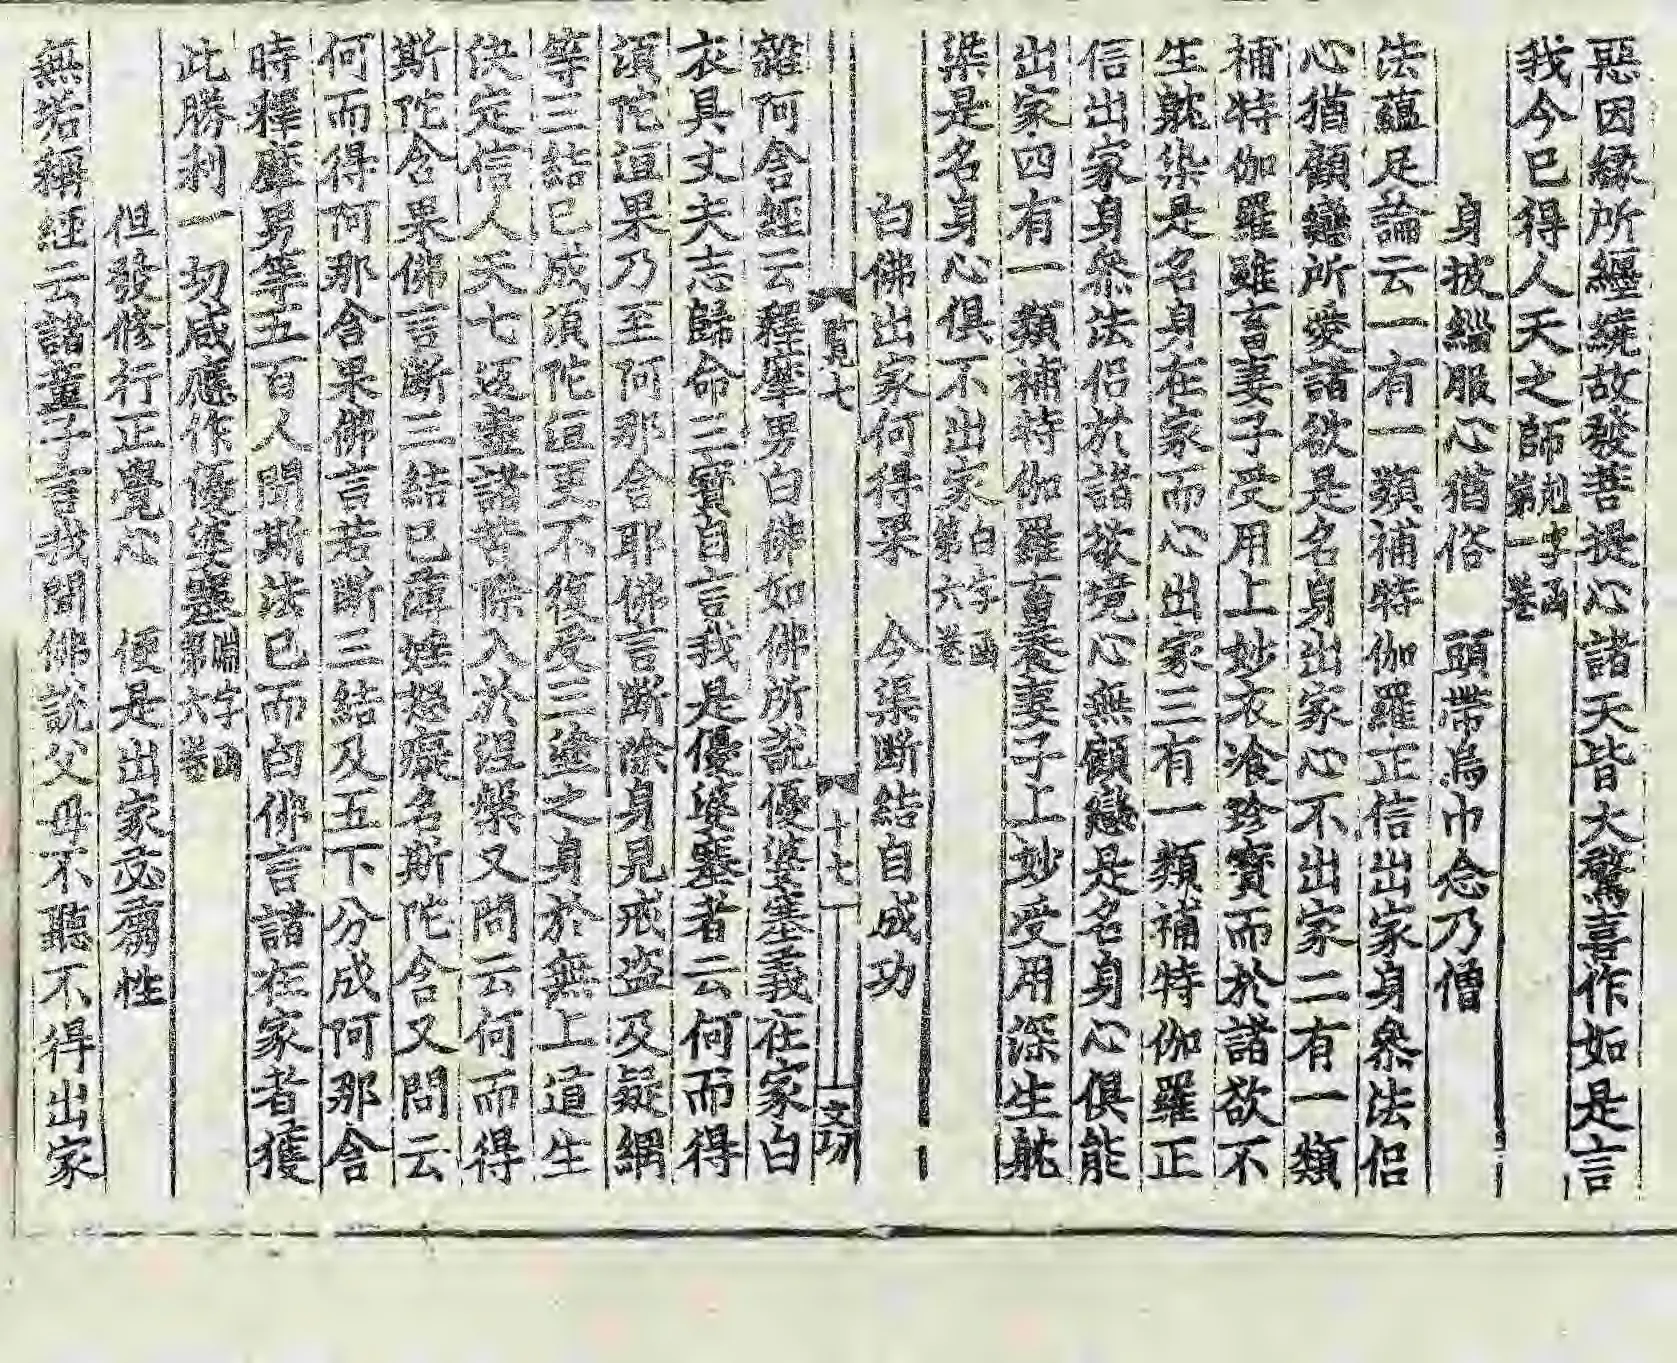 惡因緣所纏繞故發菩提心諸天皆大驚喜作如是言
我今已得人天之師剋字函第一卷
身披緇服心猶俗 頭帶烏巾念乃僧
法蘊足論云一有一類補特伽羅正信出家身叅法侶
心猶顧戀所愛諸欲是名身出家心不出家二有一類
補特伽羅雖畜妻子受用上妙衣飡珍寶而於諸欲不
生躭染是名身在家而心出家三有一類補特伽羅正
信出家身叅法侶於諸欲境心無顧戀是名身心俱能
出家四有一類補特伽羅畜養妻子上妙受用深生躭
染是名身心俱不出家白字函第六卷
白佛出家何得果 今渠斷結自成功
覧七 十七 文㓛
雜阿含經云釋摩男白佛如佛所說優婆塞義在家白
衣具丈夫志歸命三寶自言我是優婆塞者云何而得
須陀洹果乃至阿那含耶佛言斷除身見戒盗及疑網
等三結已成須陀洹更不復受三塗之身於無上道生
決定信人天七返盡諸苦際入於涅槃又問云何而得
斯陀含果佛言斷三結已薄婬怒癡名斯陀含又問云
何而得阿那含果佛言若斷三結及五下分成阿那含
時釋摩男等五百人聞斯法已而白佛言諸在家者獲
此勝利一切咸應作優婆塞淵字函第六卷
但發修行正覺心 便是出家必芻性
無垢稱經云諸童子言我聞佛說父母不聽不得出家